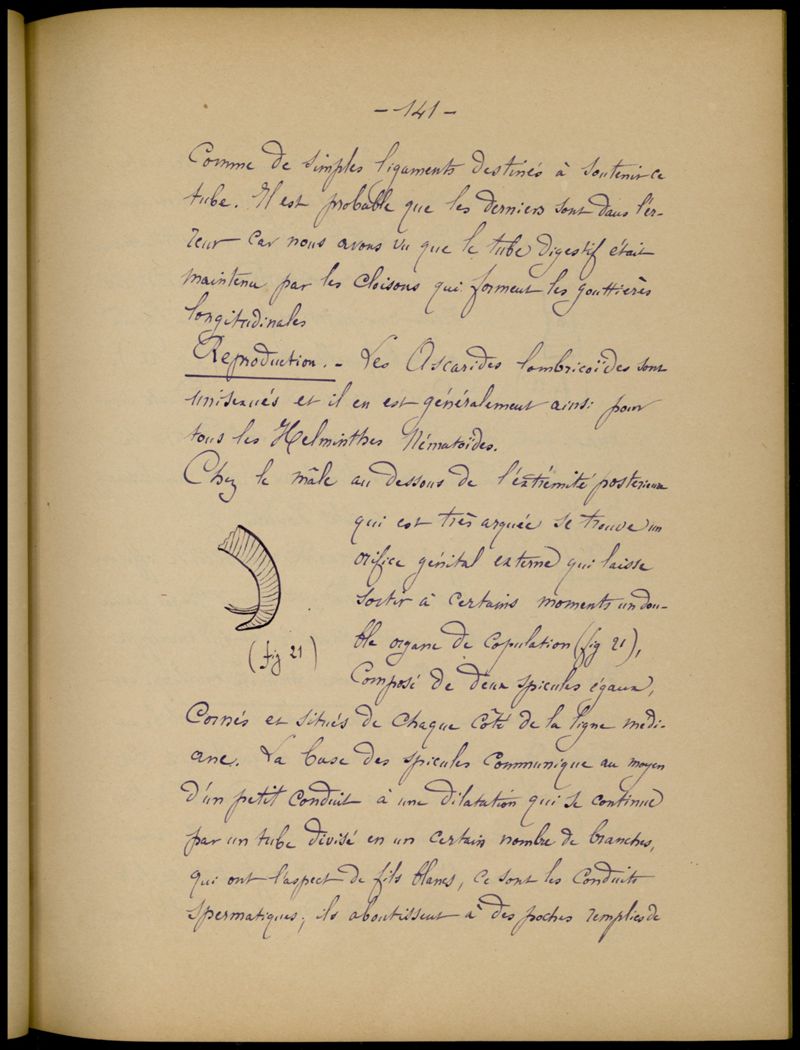 - 141 -
Comme de simples ligaments destinés à soutenir ce
tube. Il est probable que les derniers sont dans l'er-
reur car nous avons vu que le tube digestif était
maintenu par les cloisons qui forment les gouttières
longitudinales
Reproduction. - Les Ascarides lombricoïdes sont
unisexués et il en est généralement ainsi pour
tous les Helminthes Nématoïdes.
Chez le mâle au dessous de l'extrémité postérieure
qui est très arquée se trouve un
orifice génital externe qui laisse
sortir à certains moments un dou-
ble organe de copulation (fig 21),
(fig 21)
Composé de deux spicules égaux,
Cornés et situés de chaque côté de la ligne médi-
ane. La base des spicules communique au moyen
d'un petit conduit à une dilatation qui se continue
par un tube divisé en un certain nombre de branches,
qui ont l'aspect de fils blancs, ce sont les conduits
spermatiques; ils aboutissent à des poches remplies de